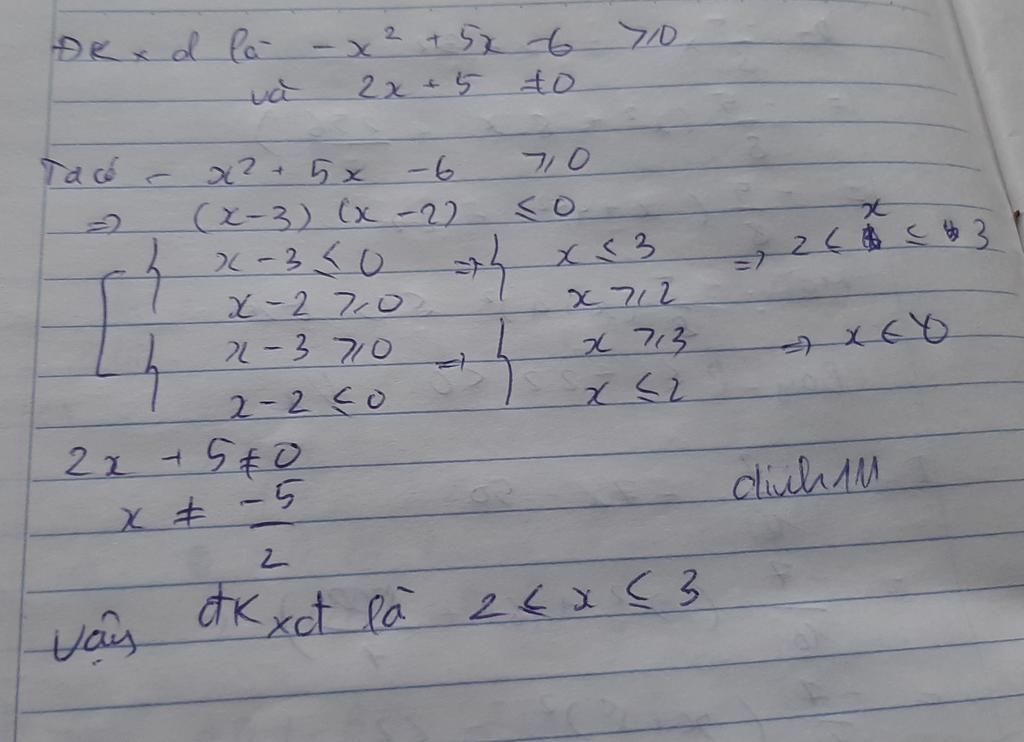 ĐKxđ là -x² + 5x -6 ≥ 0
và 2x + 5 ≠ 0
Ta có - x² + 5x -6 ≥ 0
=> (x-3) (x-2) ≤ 0
[ { x-3 ≤ 0 => { x ≤ 3 => 2 ≤ x ≤ 3
x-2 ≥ 0 x ≥ 2
{ x-3 ≥ 0 => { x ≥ 3 => x ∈ ∅
x-2 ≤ 0 x ≤ 2
2x + 5 ≠ 0
x ≠ -5/2
dinh111
Vậy đKxđ là 2 ≤ x ≤ 3